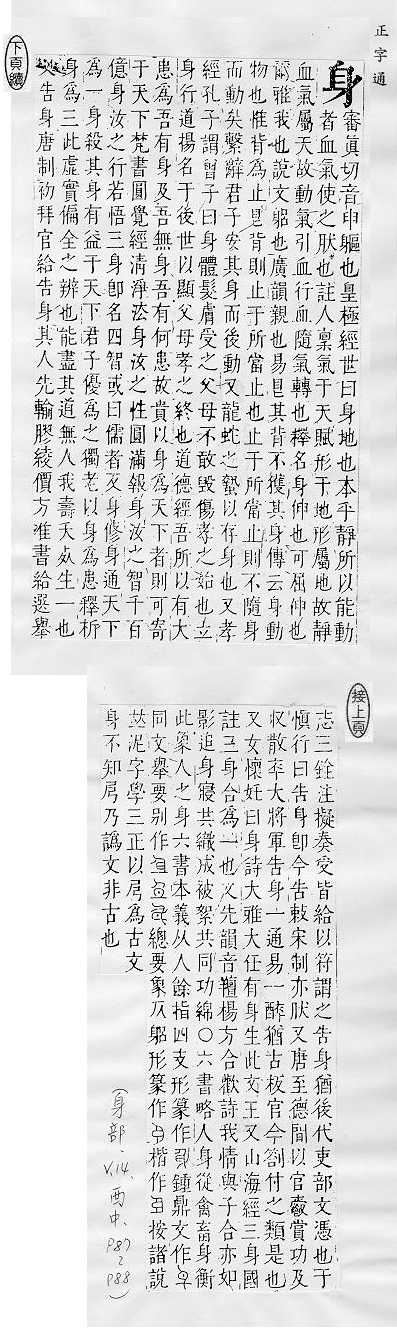 正字通
身
審眞切音申軀也皇極經世曰身地也本乎靜所以能動
者血氣使之肰也註人稟氣于天賦形于地形屬地故靜
血氣屬天故動氣引血行血隨氣轉也釋名身伸也可屈伸也
爾雅我也說文躬也廣韻親也易艮其背不獲其身傳云身動
物也惟背為止艮背則止于所當止也止于所當止則不隨身
而動矣繫辭君子安其身而後動又龍蛇之蟄以存身也又孝
經孔子謂曾子曰身體髮膚受之父母不敢毀傷孝之始也立
身行道揚名于後世以顯父母孝之終也道德經吾所以有大
患為吾有身及吾無身吾有何患故貴以身為天下者則可寄
于天下梵書圓覺經清淨法身汝之性圓滿報身汝之智千百
億身汝之行若悟三身卽名四智或曰儒者反身修身通天下
為一身殺其身有益于天下君子優為之獨老以身為患釋析
身為三此虛實偏全之辨也能盡其道無人我壽夭死生一也
又告身唐制初拜官給告身其人先輸膠綾價方准書給選舉
下頁續
接上頁
志三銓注擬奏受皆給以符謂之告身猶後代吏部文憑也于
愼行曰告身卽今告敕宋制亦肰又唐至德間以官爵賞功及
収散卒大將軍告身一通易一醉猶古板官今劄付之類是也
又女懷妊曰身詩大雅大任有身生此文王又山海經三身國
註三身合為一也又先韻音羶楊方合歡詩我情與子合亦如
影追身寢共織成被絮共同功綿○六書略人身從禽畜身衡
此象人之身六書本義从人餘指四支形篆作鍾鼎文作
同文舉要別作總要象仄躬形篆作楷作按諸說
𠀤泥字學三正以㞆為古文
身不知㞆乃譌文非古也
(身部、V.14、酉中、P87~P88)